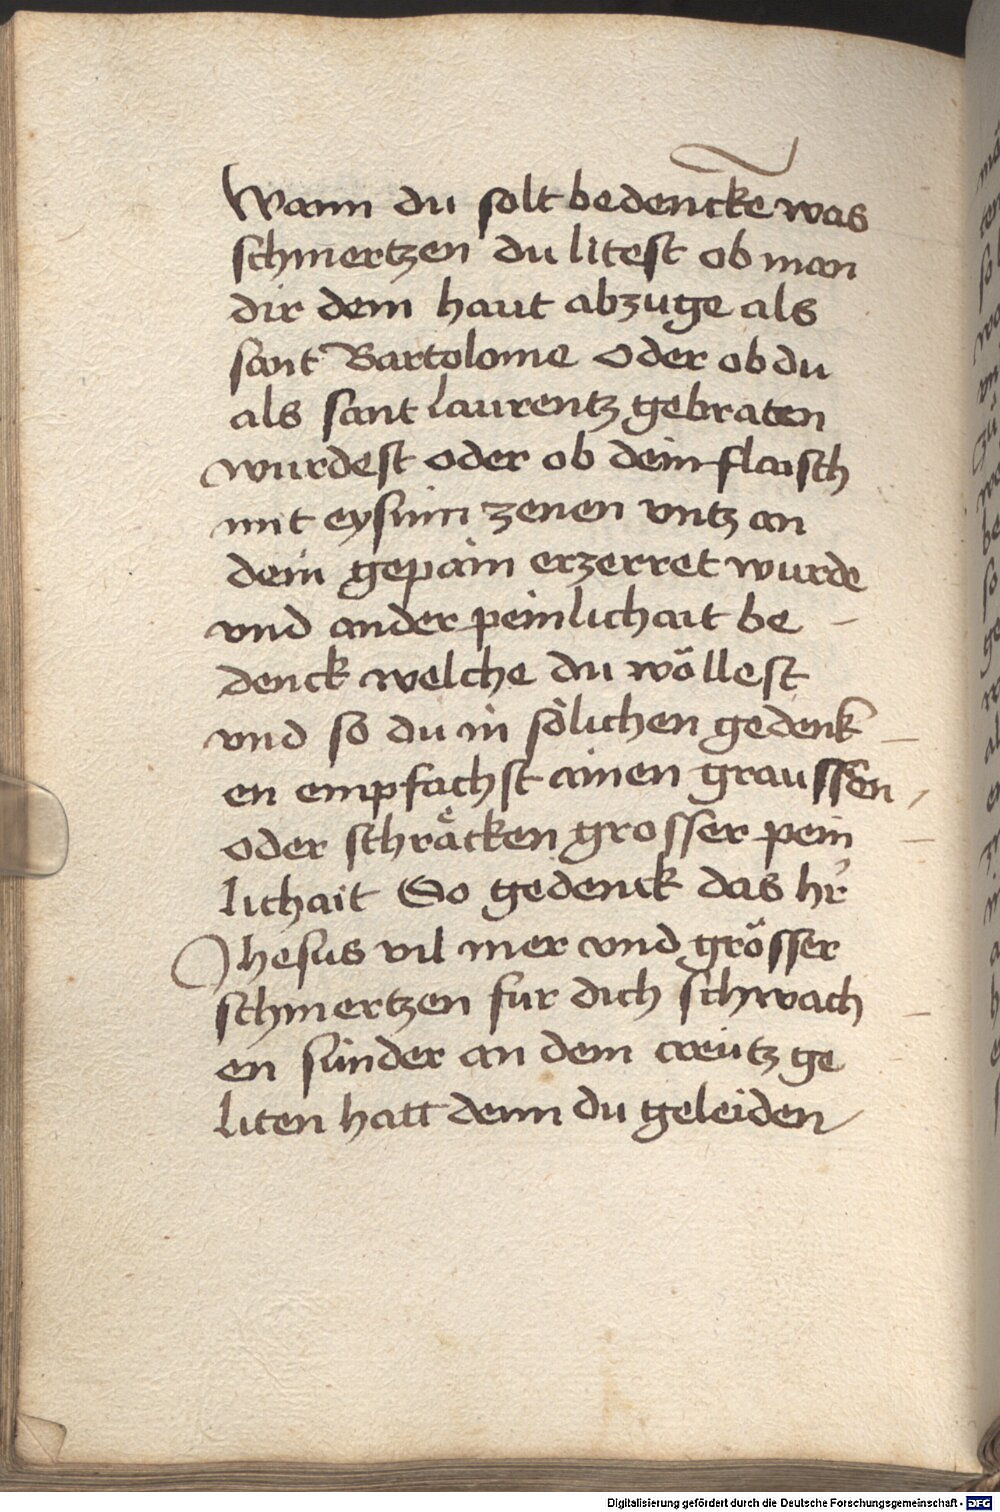 Wann du solt bedencke was
schmertzen du litest ob man
dir dem haut abzuge als
sant Bartolome oder ob du
als sant laurentz gebraten
wurdest oder ob dein flaisch
mit eysnin zenen vntz an
dein gepain erzerret wurde
vnd ander peinlichait be
denck welche du wöllest
vnd so du in sölichen gedenk
en empfachst ainen graussen
oder schräcken grosser pein
lichait So gedenck das hr̄
Jhesus vil mer vnd grösser
schmertzen fur dich schwach
en sünder an dem creutz ge
liten hatt denn du geleiden
Digitalisierung gefördert durch die Deutsche Forschungsgemeinschaft - DFG